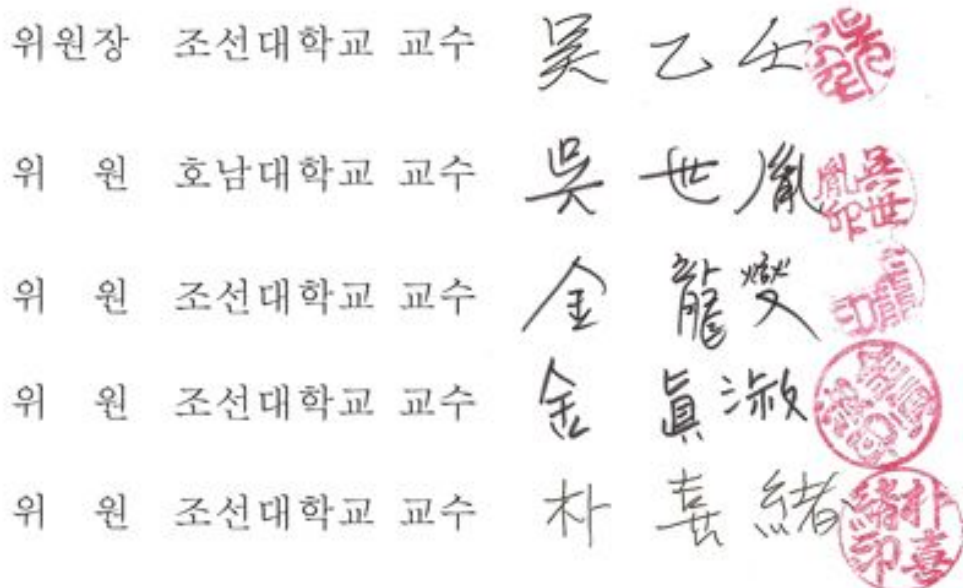 위원장 조선대학교 교수 吳 乙 壬
위 원 호남대학교 교수 吳 世 胤
위 원 조선대학교 교수 金 龍 燮
위 원 조선대학교 교수 金 眞 淑
위 원 조선대학교 교수 朴 喜 緖